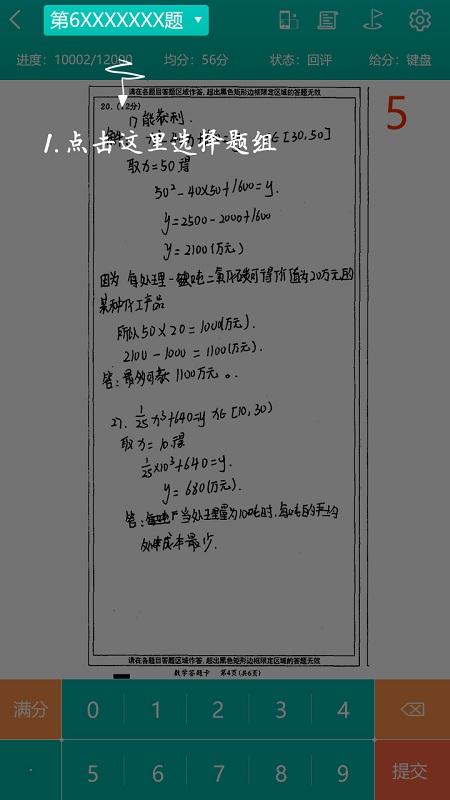 第6XXXXXXX题
进度：10002/12000 均分：56分 状态：回评 给分：键盘
请在各题目答题区域作答，超出黑色矩形边框限定区域的答题无效
5
20.（12分）
1.点击这里选择题组
∈[30,50]
取x=50得
50²-40×50+1600=y.
y=2500-2000+1600
y=2100(万元)
因为 每处理一吨二氧化碳可得价值为20万元的
某种化工产品
所以50×20=1000(万元).
2100-1000=1100(万元).
答:最多可获1100万元。
1/25 x³+640=y x∈[10,30)
取x=10.得
1/25×10³+640=y.
y=680(万元).
答: 当处理量为10吨时,每吨的平均
处理成本最少.
请在各题目答题区域作答，超出黑色矩形边框限定区域的答题无效
数学答题卡 第4页(共6页)
满分 0 1 2 3 4
· 5 6 7 8 9 提交